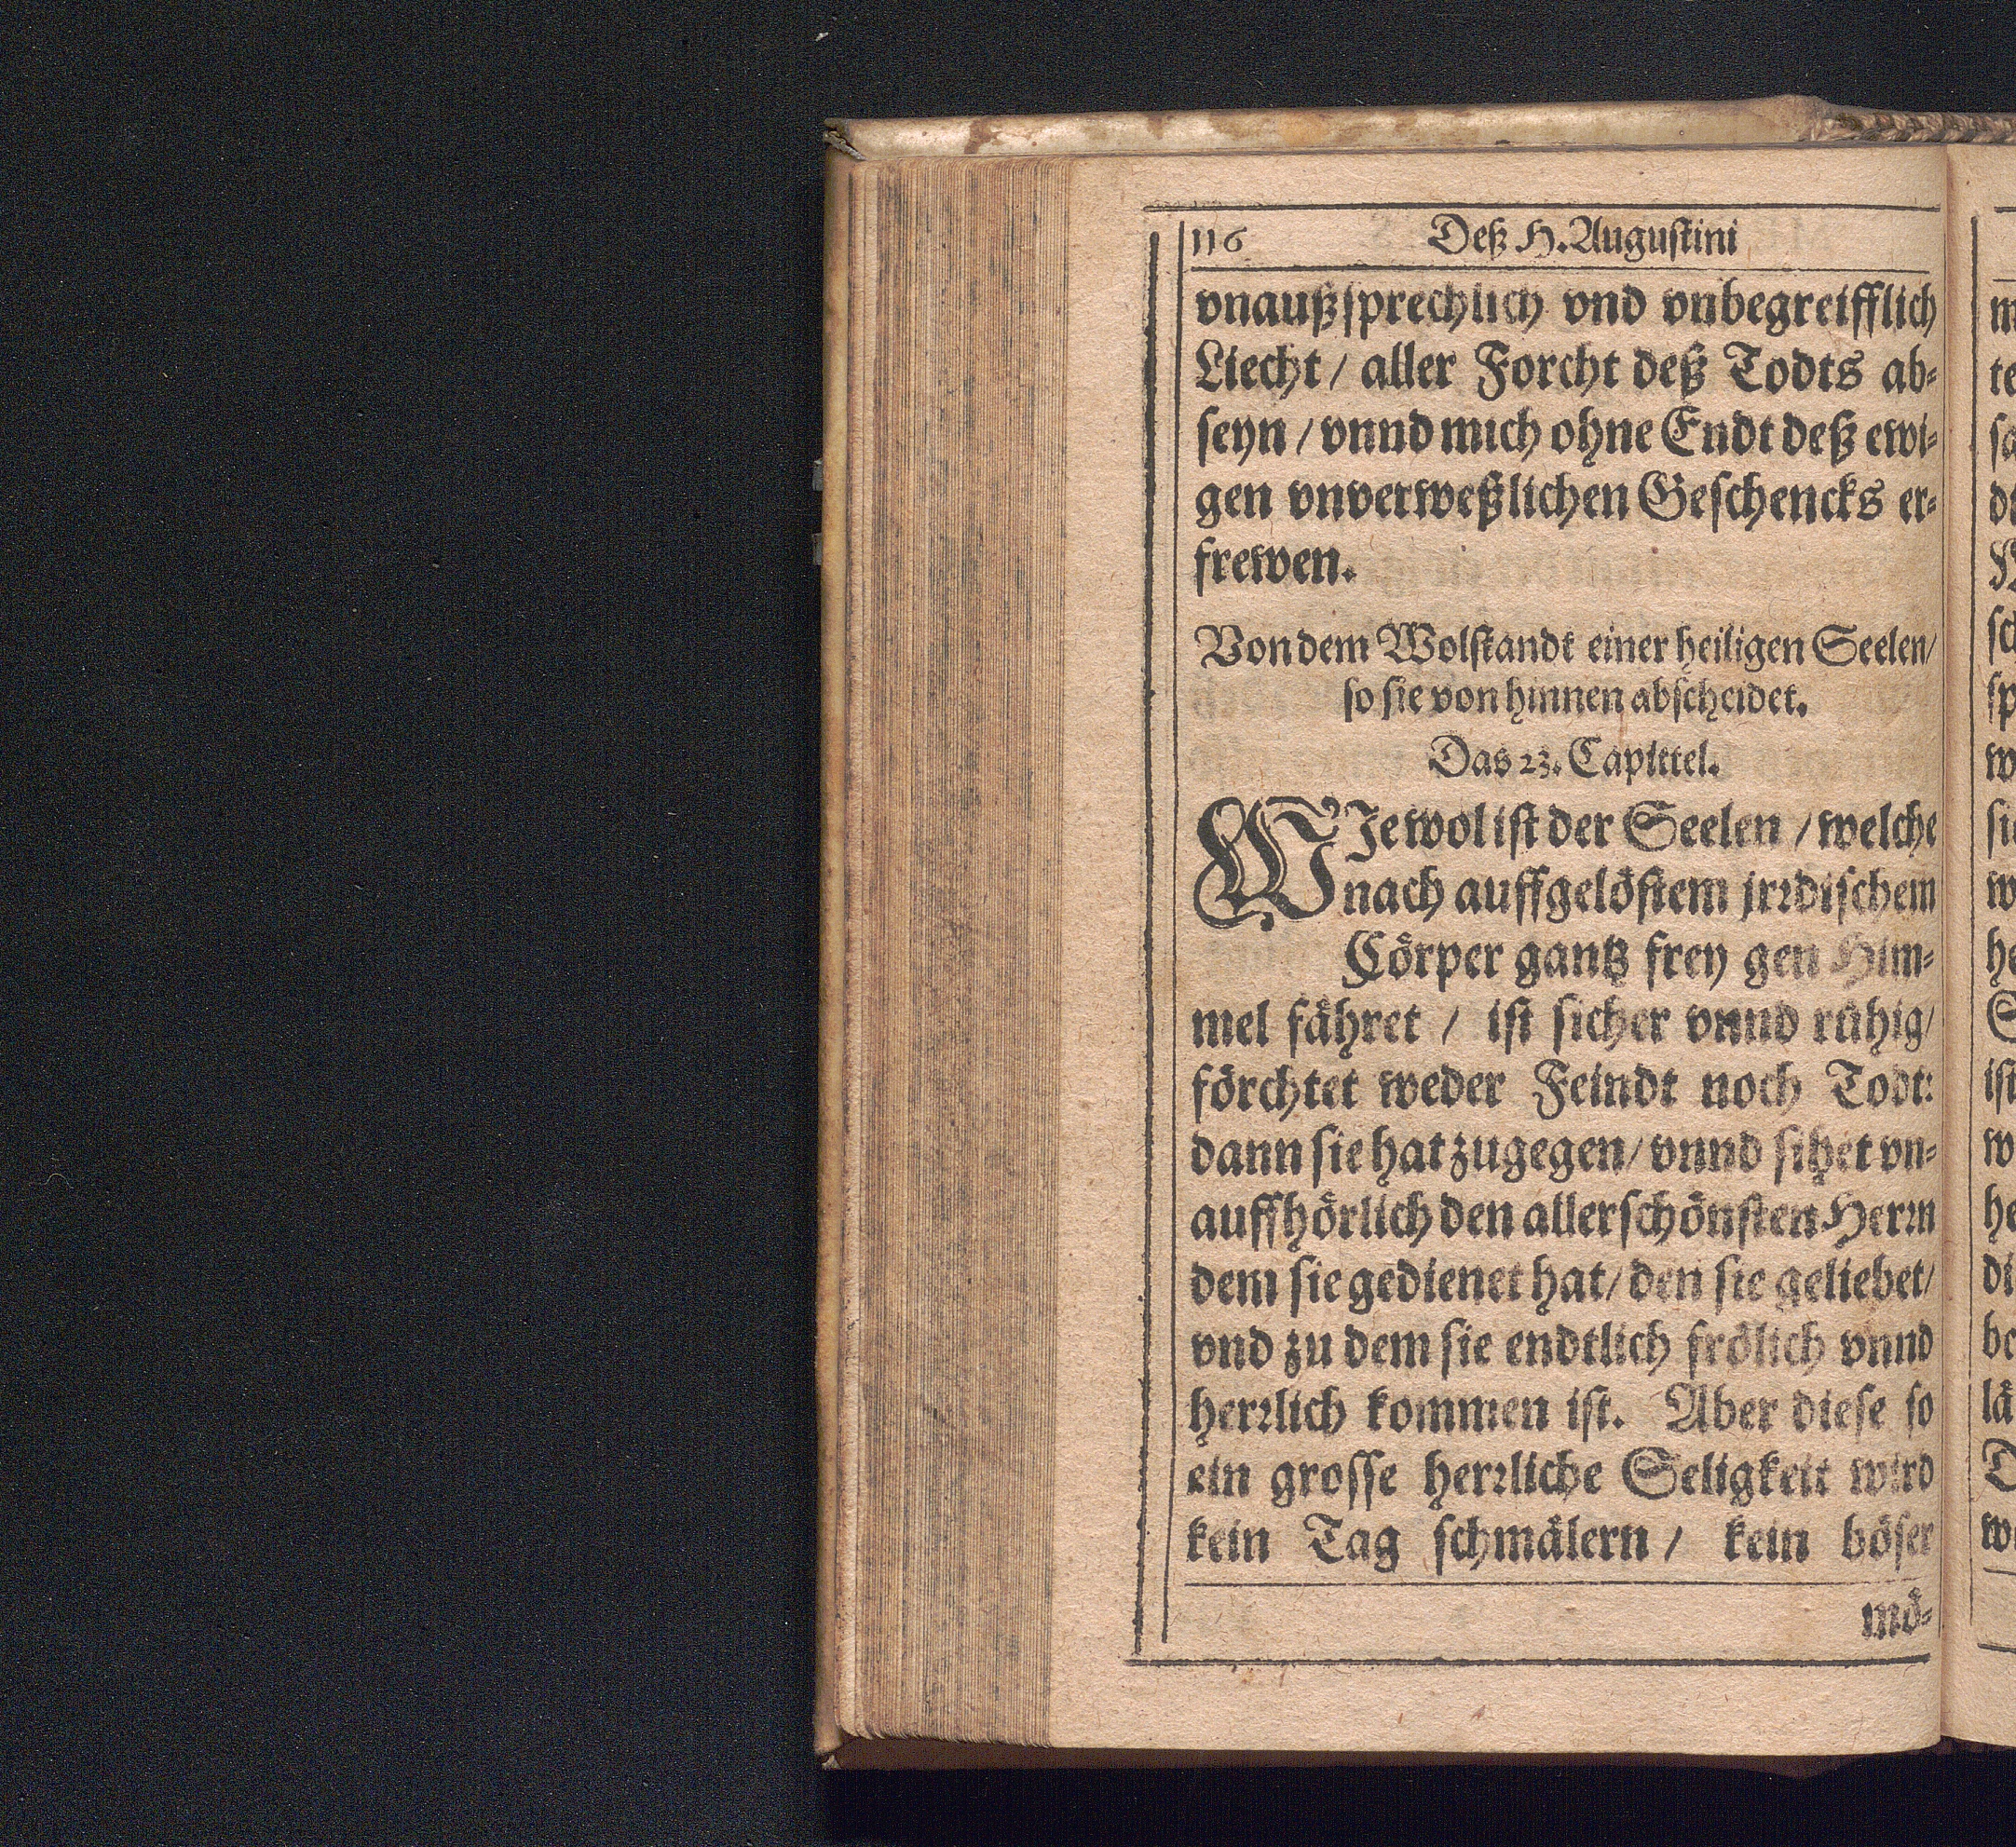 116 Deß H. Augustini
vnaußsprechlich vnd vnbegreifflich
Liecht / aller Forcht deß Todts ab-
seyn / vnnd mich ohne Endt deß ewi-
gen vnverweßlichen Geschencks er-
frewen.
Von dem Wolstandt einer heiligen Seelen/
so sie von hinnen abscheidet.
Das 23. Capittel.
WJe wol ist der Seelen / welche
nach auffgelöstem jrrdischem
Cörper gantz frey gen Him-
mel fähret / ist sicher vnnd rühig/
förchtet weder Feindt noch Todt:
dann sie hat zugegen/ vnnd sihet vn-
auffhörlich den allerschönsten Herrn
dem sie gedienet hat/ den sie geliebet/
vnd zu dem sie endtlich frölich vnnd
herrlich kommen ist. Aber diese so
ein grosse herrliche Seligkeit wird
kein Tag schmälern / kein böser
mö-